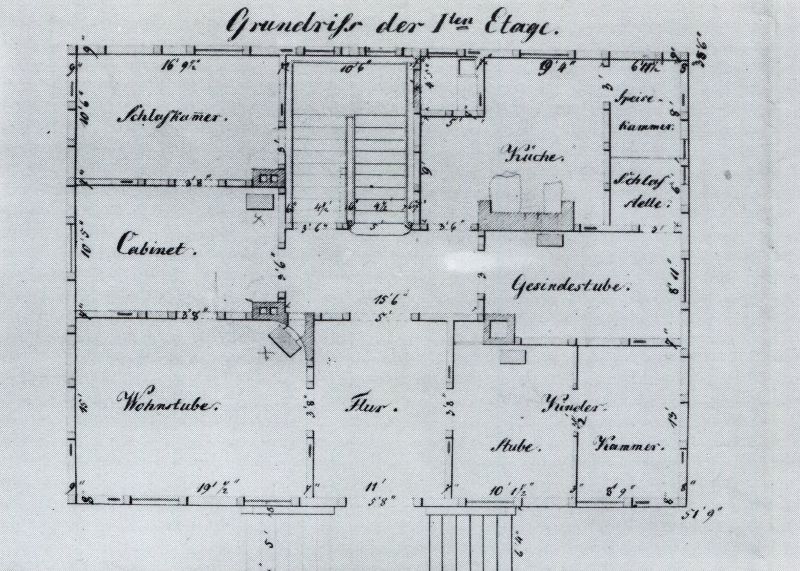 Grundriss der 1ten Etage.
16' 9½"
10' 6"
9' 4"
38' 6"
Schlafkamer.
10' 6"
Speise-
kammer.
Küche.
Schlaf
stelle.
3' 8"
4½'
4½
3' 6"
5'
3' 6"
Cabinet.
10' 5"
3' 6"
Gesindestube.
8' 11"
15' 6"
5'
3' 8"
Wohnstube.
Flur.
Kinder-
Stube.
Kammer.
15'
3' 8"
3' 8"
19' ½"
11'
5' 8"
10' 1½"
8' 9"
51' 9"
5'
6' 4"